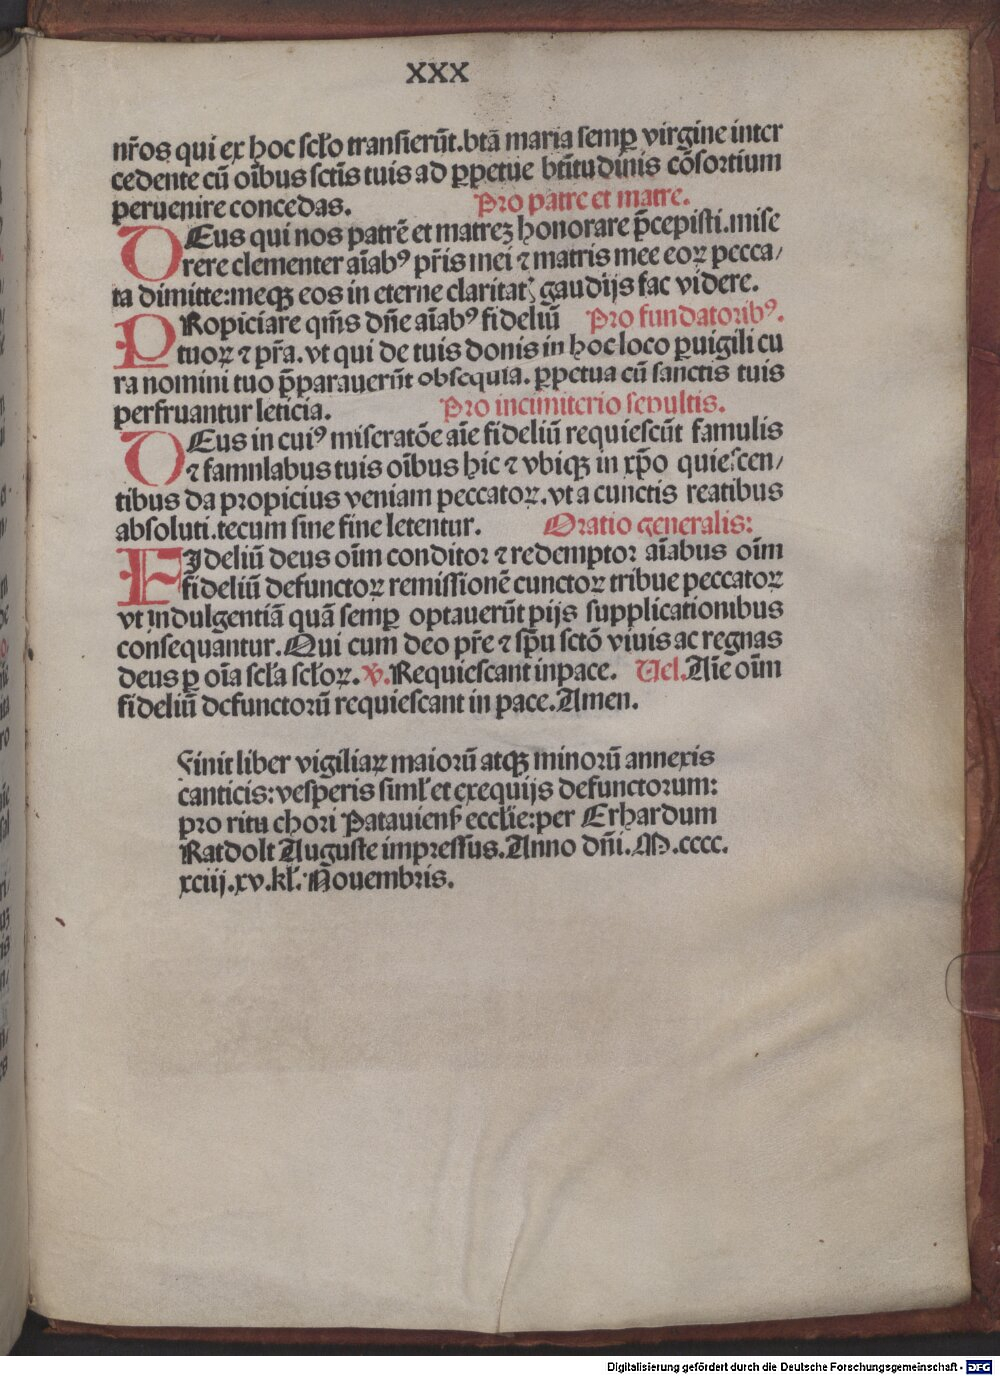 xxx
nr̃os qui ex hoc scl̃o transierũt.btã maria semꝑ virgine inter
cedente cũ oĩbus sctĩs tuis ad ꝑpetue btĩtudinis cõsortium
peruenire concedas. Pro patre et matre.
DEus qui nos patrẽ et matreꝫ honorare p̃cepisti.mise
rere clementer aĩabꝰ pr̃is mei ⁊ matris mee eoꝝ pecca/
ta dimitte:meqꝫ eos in eterne claritatꝭ gaudijs fac videre.
PRopiciare qm̃s dñe aĩabꝰ fideliũ Pro fundatoribꝰ.
tuoꝝ ⁊ pr̃a.vt qui de tuis donis in hoc loco ꝑuigili cu
ra nomini tuo p̃pararauerũt obsequia.ꝑpetua cũ sanctis tuis
perfruantur leticia. Pro incimiterio sepultis.
DEus in cuiꝰ miseratõe aĩe fideliũ requiescũt famulis
⁊ famnlabus tuis oĩbus hic ⁊ vbiqꝫ in xp̃o quiescen/
tibus da propicius veniam peccatoꝝ.vt a cunctis reatibus
absoluti.tecum sine fine letentur. Oratio generalis:
FIdeliũ deus oĩm conditor ⁊ redemptor aĩabus oĩm
fideliũ defunctoꝝ remissionẽ cunctoꝝ tribue peccatoꝝ
vt indulgentiã quã semꝑ optauerũt pijs supplicationibus
consequantur.Qui cum deo pr̃e ⁊ sp̃u sctõ viuis ac regnas
deus ꝑ oĩa scl̃a scl̃oꝝ. ꝟ.Requiescant inpace. Uel.Aĩe oĩm
fideliũ defunctorũ requiescant in pace.Amen.
Finit liber vigiliaꝝ maiorũ atqꝫ minorũ annexis
canticis:vesperis siml̃ et exequijs defunctorum:
pro ritu chori Patauienß eccl̃ie:per Erhardum
Ratdolt Auguste impressus.Anno dñi.M.cccc.
xciij.xv.kl̃.Nouembris.
Digitalisierung gefördert durch die Deutsche Forschungsgemeinschaft - DFG